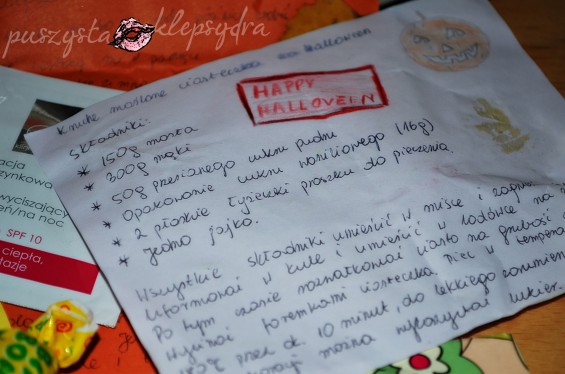 puszysta klepsydra
Kruche maślane ciasteczka na halloween
HAPPY
HALLOVEEN
Składniki:
* 150g masła
* 300g mąki
* 50g przesianego cukru pudru
* Opakowanie cukru waniliowego (16g)
* 2 płaskie łyżeczki proszku do pieczenia.
* Jedno jajko.
Wszystkie składniki umieścić w misce i
Uformować w kulę i umieścić w lodówce na
Po tym czasie rozwałkować ciasto na grubość
Wyciąć foremkami ciasteczka. Piec w
przez ok. 10 minut, do lekkiego
można wykorzystać lukier.
acja
zynkowa
wyciszający
eń/na noc
SPF 10
ciepła,
łdazje